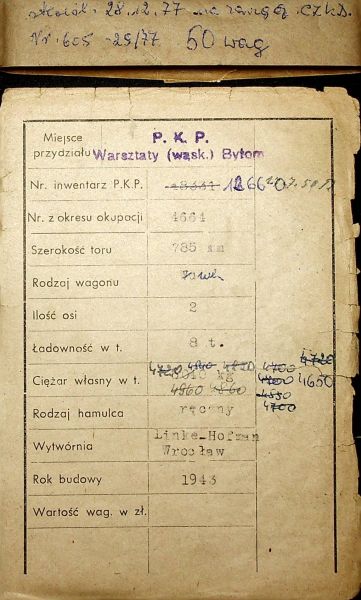 28.12.77 na
Nr. 605 -25/77 60 wag
Miejsce przydziału P. K. P.
Warsztaty (wąsk.) Bytom
Nr. inwentarz P.K.P. 12660
Nr. z okresu okupacji 4664
Szerokość toru 785 mm
Rodzaj wagonu
Ilość osi 2
Ładowność w t. 8 t.
4720 4700 4720
Ciężar własny w t. kg 4650
4860 4860 4850
4700
Rodzaj hamulca ręczny
Wytwórnia Linke-Hofman
Wrocław
Rok budowy 1943
Wartość wag. w zł.